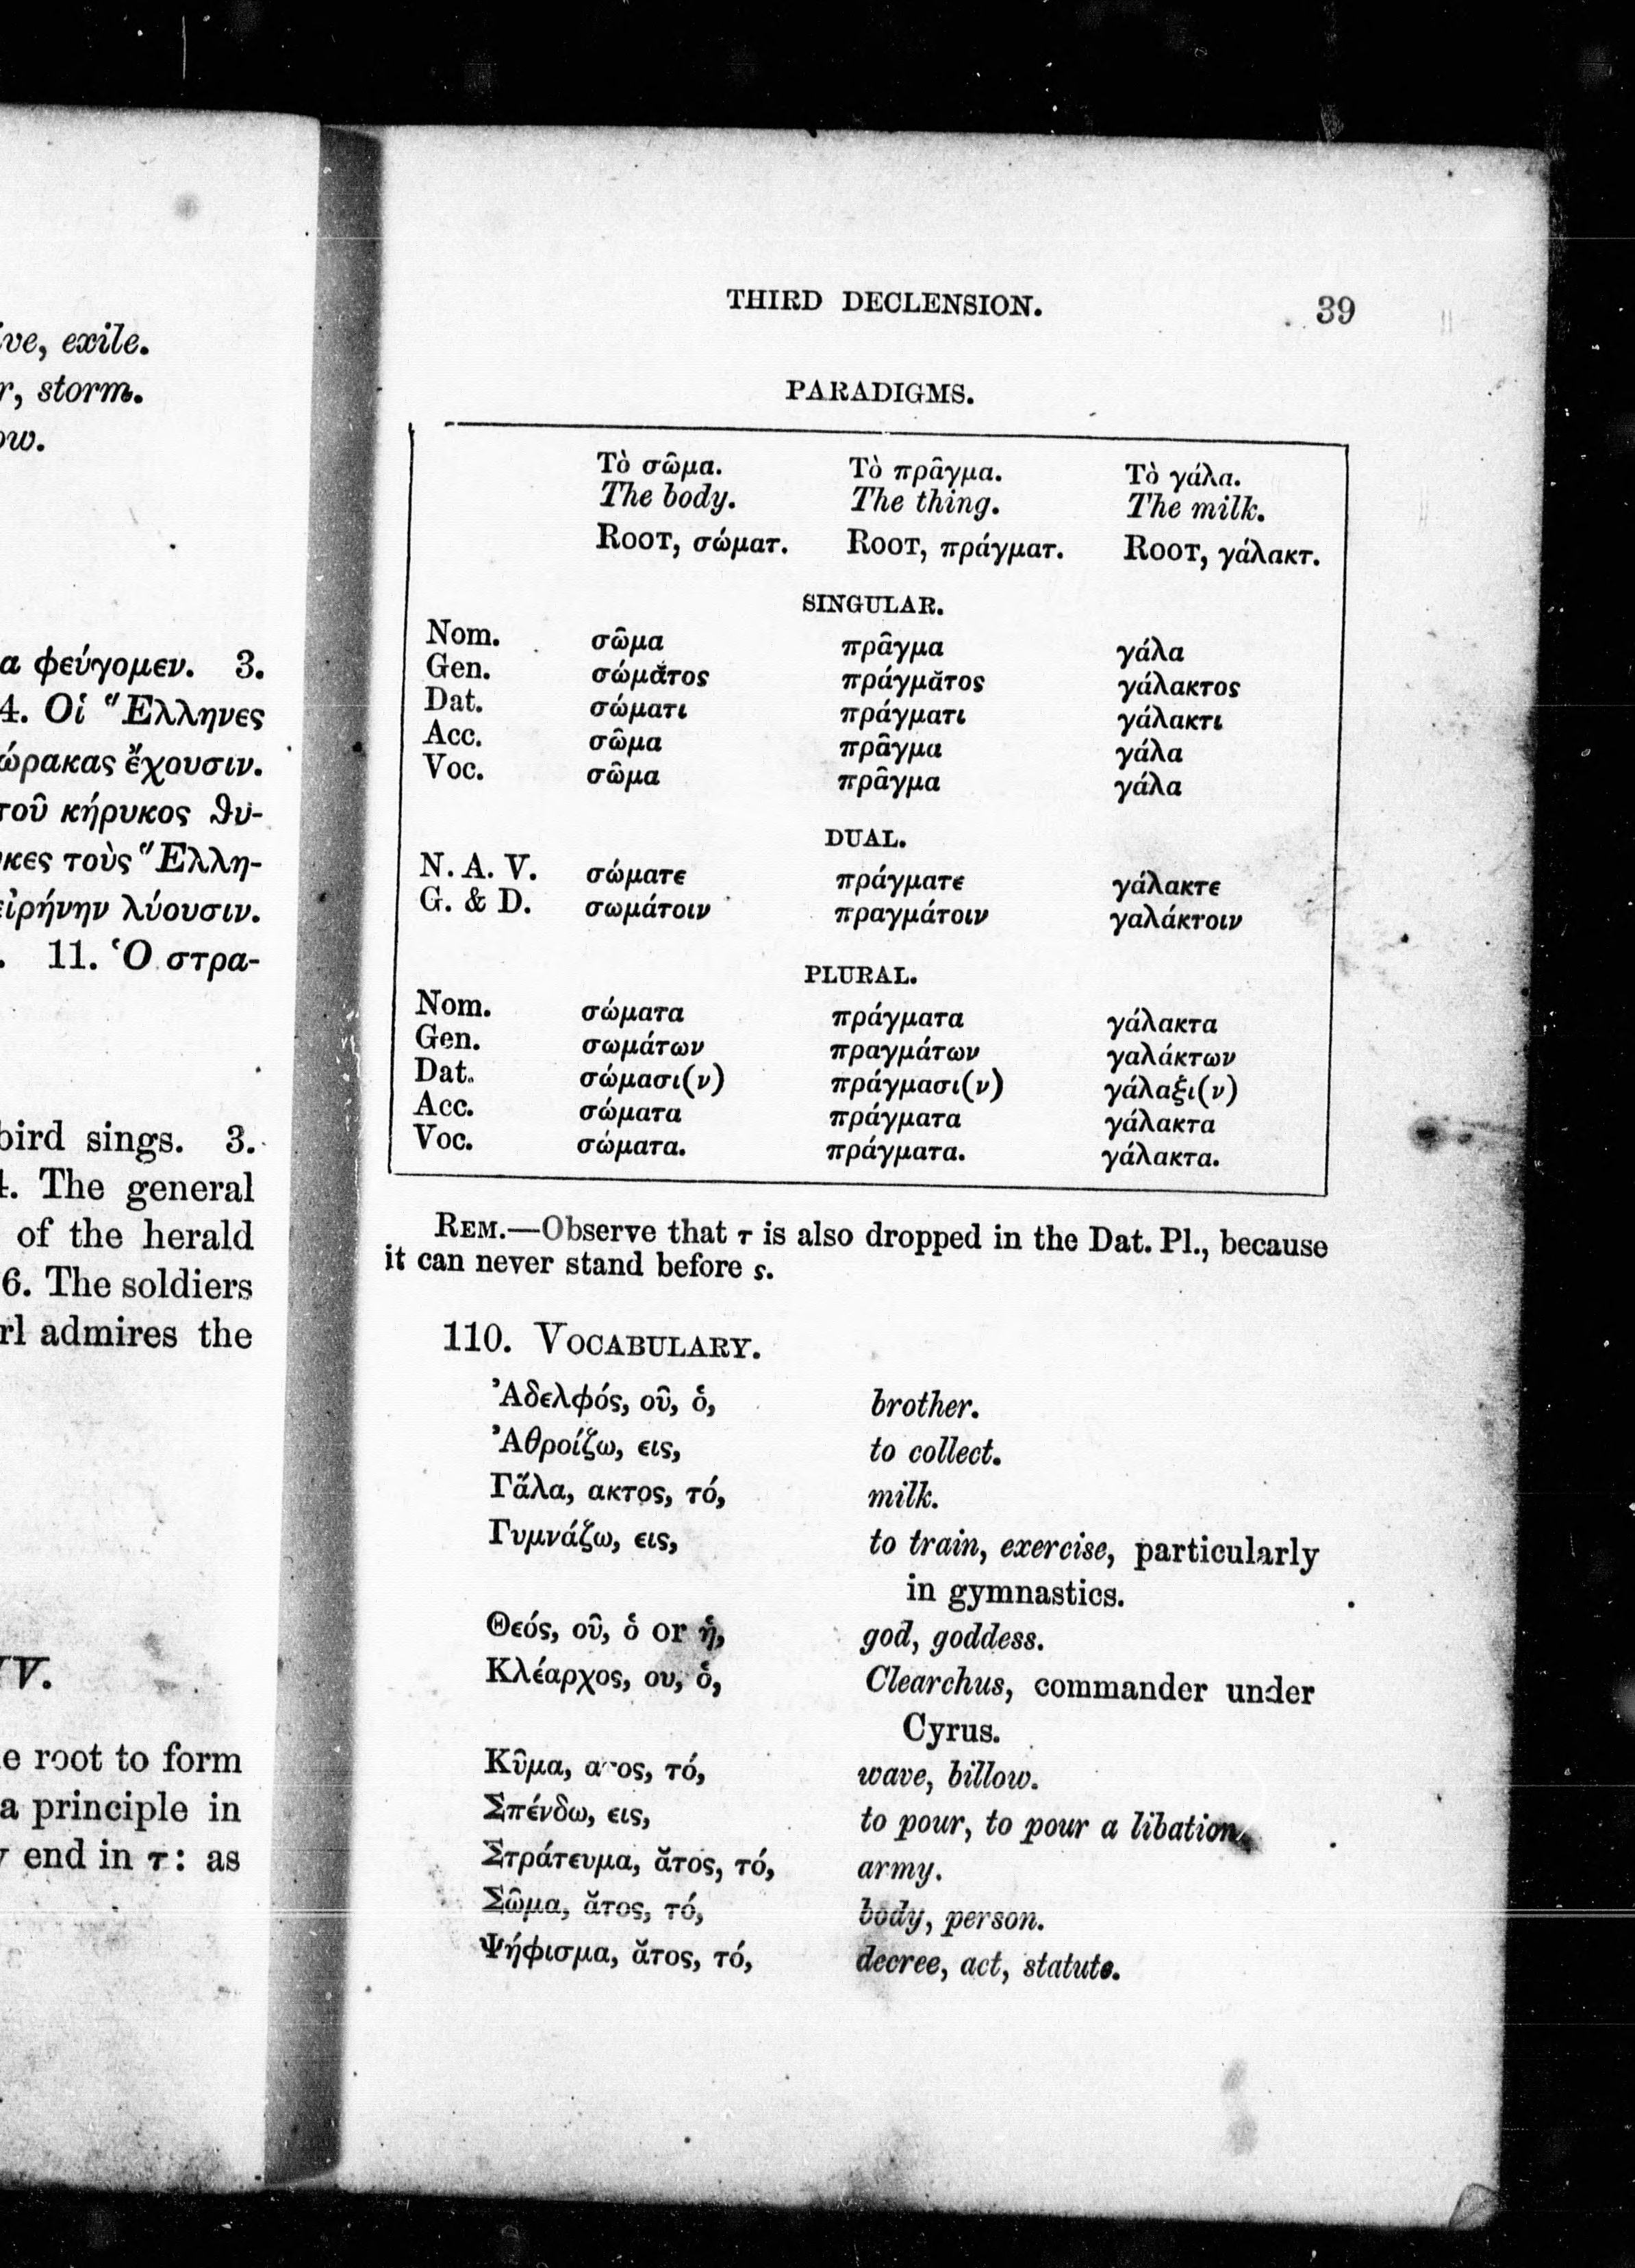 ve, exile.
r, storm.
ow.
α φεύγομεν. 3.
4. Οἱ Ἕλληνες
ώρακας ἔχουσιν.
τοῦ κήρυκος ϑυ-
κες τοὺς Ἕλλη-
εἰρήνην λύουσιν.
. 11. Ὁ στρα-
bird sings. 3.
4. The general
of the herald
6. The soldiers
rl admires the
IV.
e root to form
a principle in
end in τ: as
THIRD DECLENSION. 39
PARADIGMS.
Τὸ σῶμα. Τὸ πρᾶγμα. Τὸ γάλα.
The body. The thing. The milk.
ROOT, σώματ. ROOT, πράγματ. ROOT, γάλακτ.
SINGULAR.
Nom. σῶμα πρᾶγμα γάλα
Gen. σώμᾰτος πράγμᾰτος γάλακτος
Dat. σώματι πράγματι γάλακτι
Acc. σῶμα πρᾶγμα γάλα
Voc. σῶμα πρᾶγμα γάλα
DUAL.
N. A. V. σώματε πράγματε γάλακτε
G. & D. σωμάτοιν πραγμάτοιν γαλάκτοιν
PLURAL.
Nom. σώματα πράγματα γάλακτα
Gen. σωμάτων πραγμάτων γαλάκτων
Dat. σώμασι(ν) πράγμασι(ν) γάλαξι(ν)
Acc. σώματα πράγματα γάλακτα
Voc. σώματα. πράγματα. γάλακτα.
REM.—Observe that τ is also dropped in the Dat. Pl., because
it can never stand before ς.
110. VOCABULARY.
Ἀδελφός, οῦ, ὁ, brother.
Ἀθροίζω, εις, to collect.
Γᾰ́λα, ακτος, τό, milk.
Γυμνάζω, εις, to train, exercise, particularly
in gymnastics.
Θεός, οῦ, ὁ or ἡ, god, goddess.
Κλέαρχος, ου, ὁ, Clearchus, commander under
Cyrus.
Κῦμα, ατος, τό, wave, billow.
Σπένδω, εις, to pour, to pour a libation.
Στράτευμα, ᾰτος, τό, army.
Σῶμα, ᾰτος, τό, body, person.
Ψήφισμα, ᾰτος, τό, decree, act, statute.